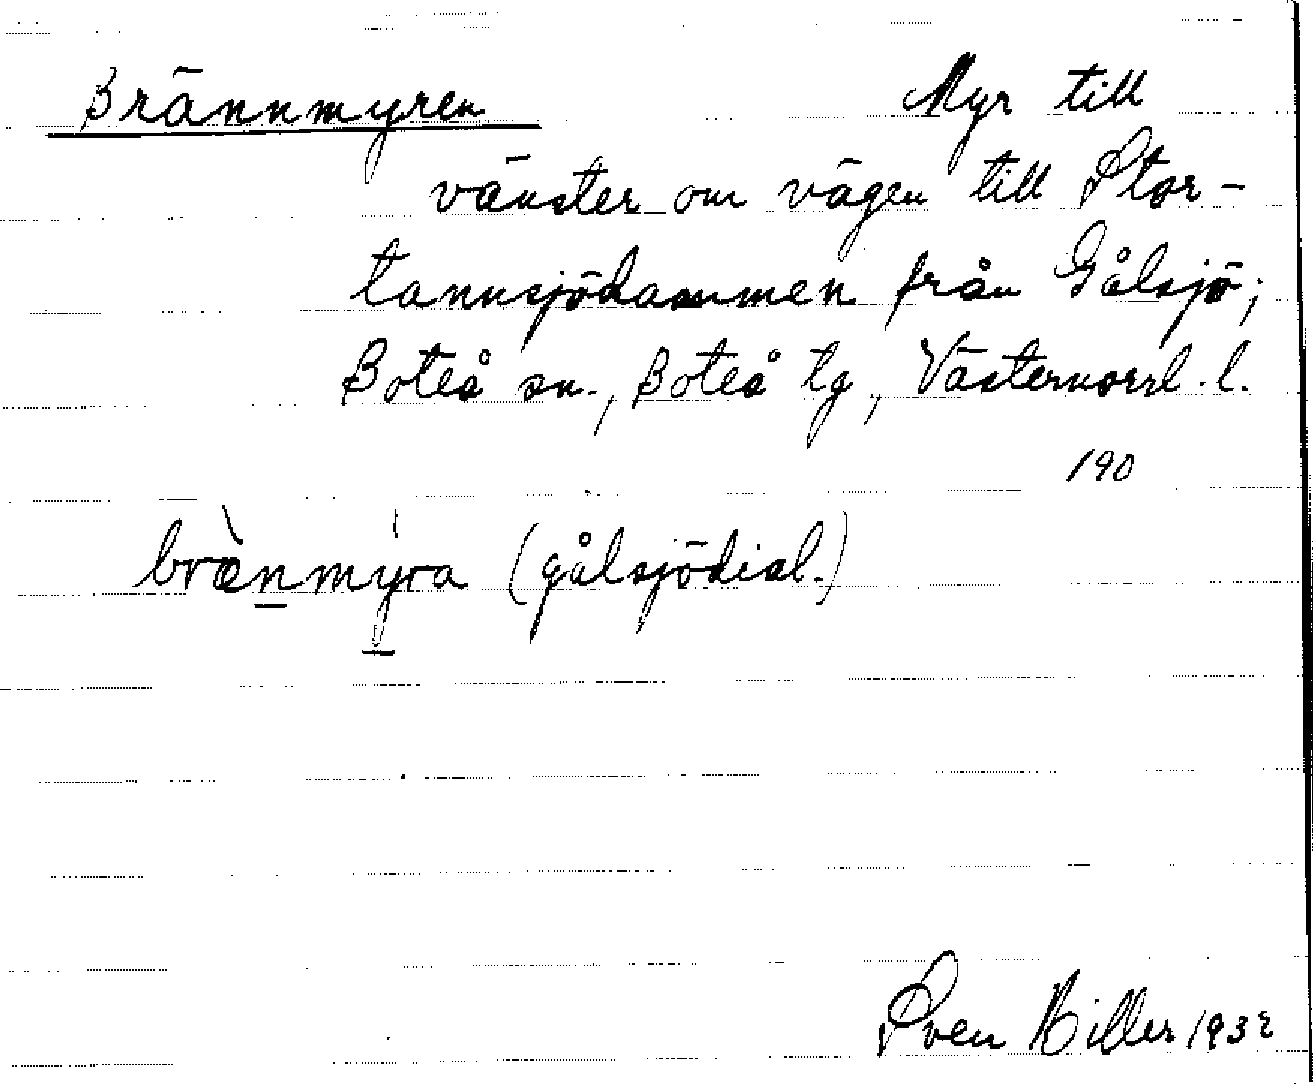 Brännmyren Myr till
vänster om vägen till Stor-
tannsjödammen från Gålsjö;
Boteå sn., Boteå tg, Västernorrl. l.
190
brænmyra (gålsjödial.)
Sven Hiller 1932